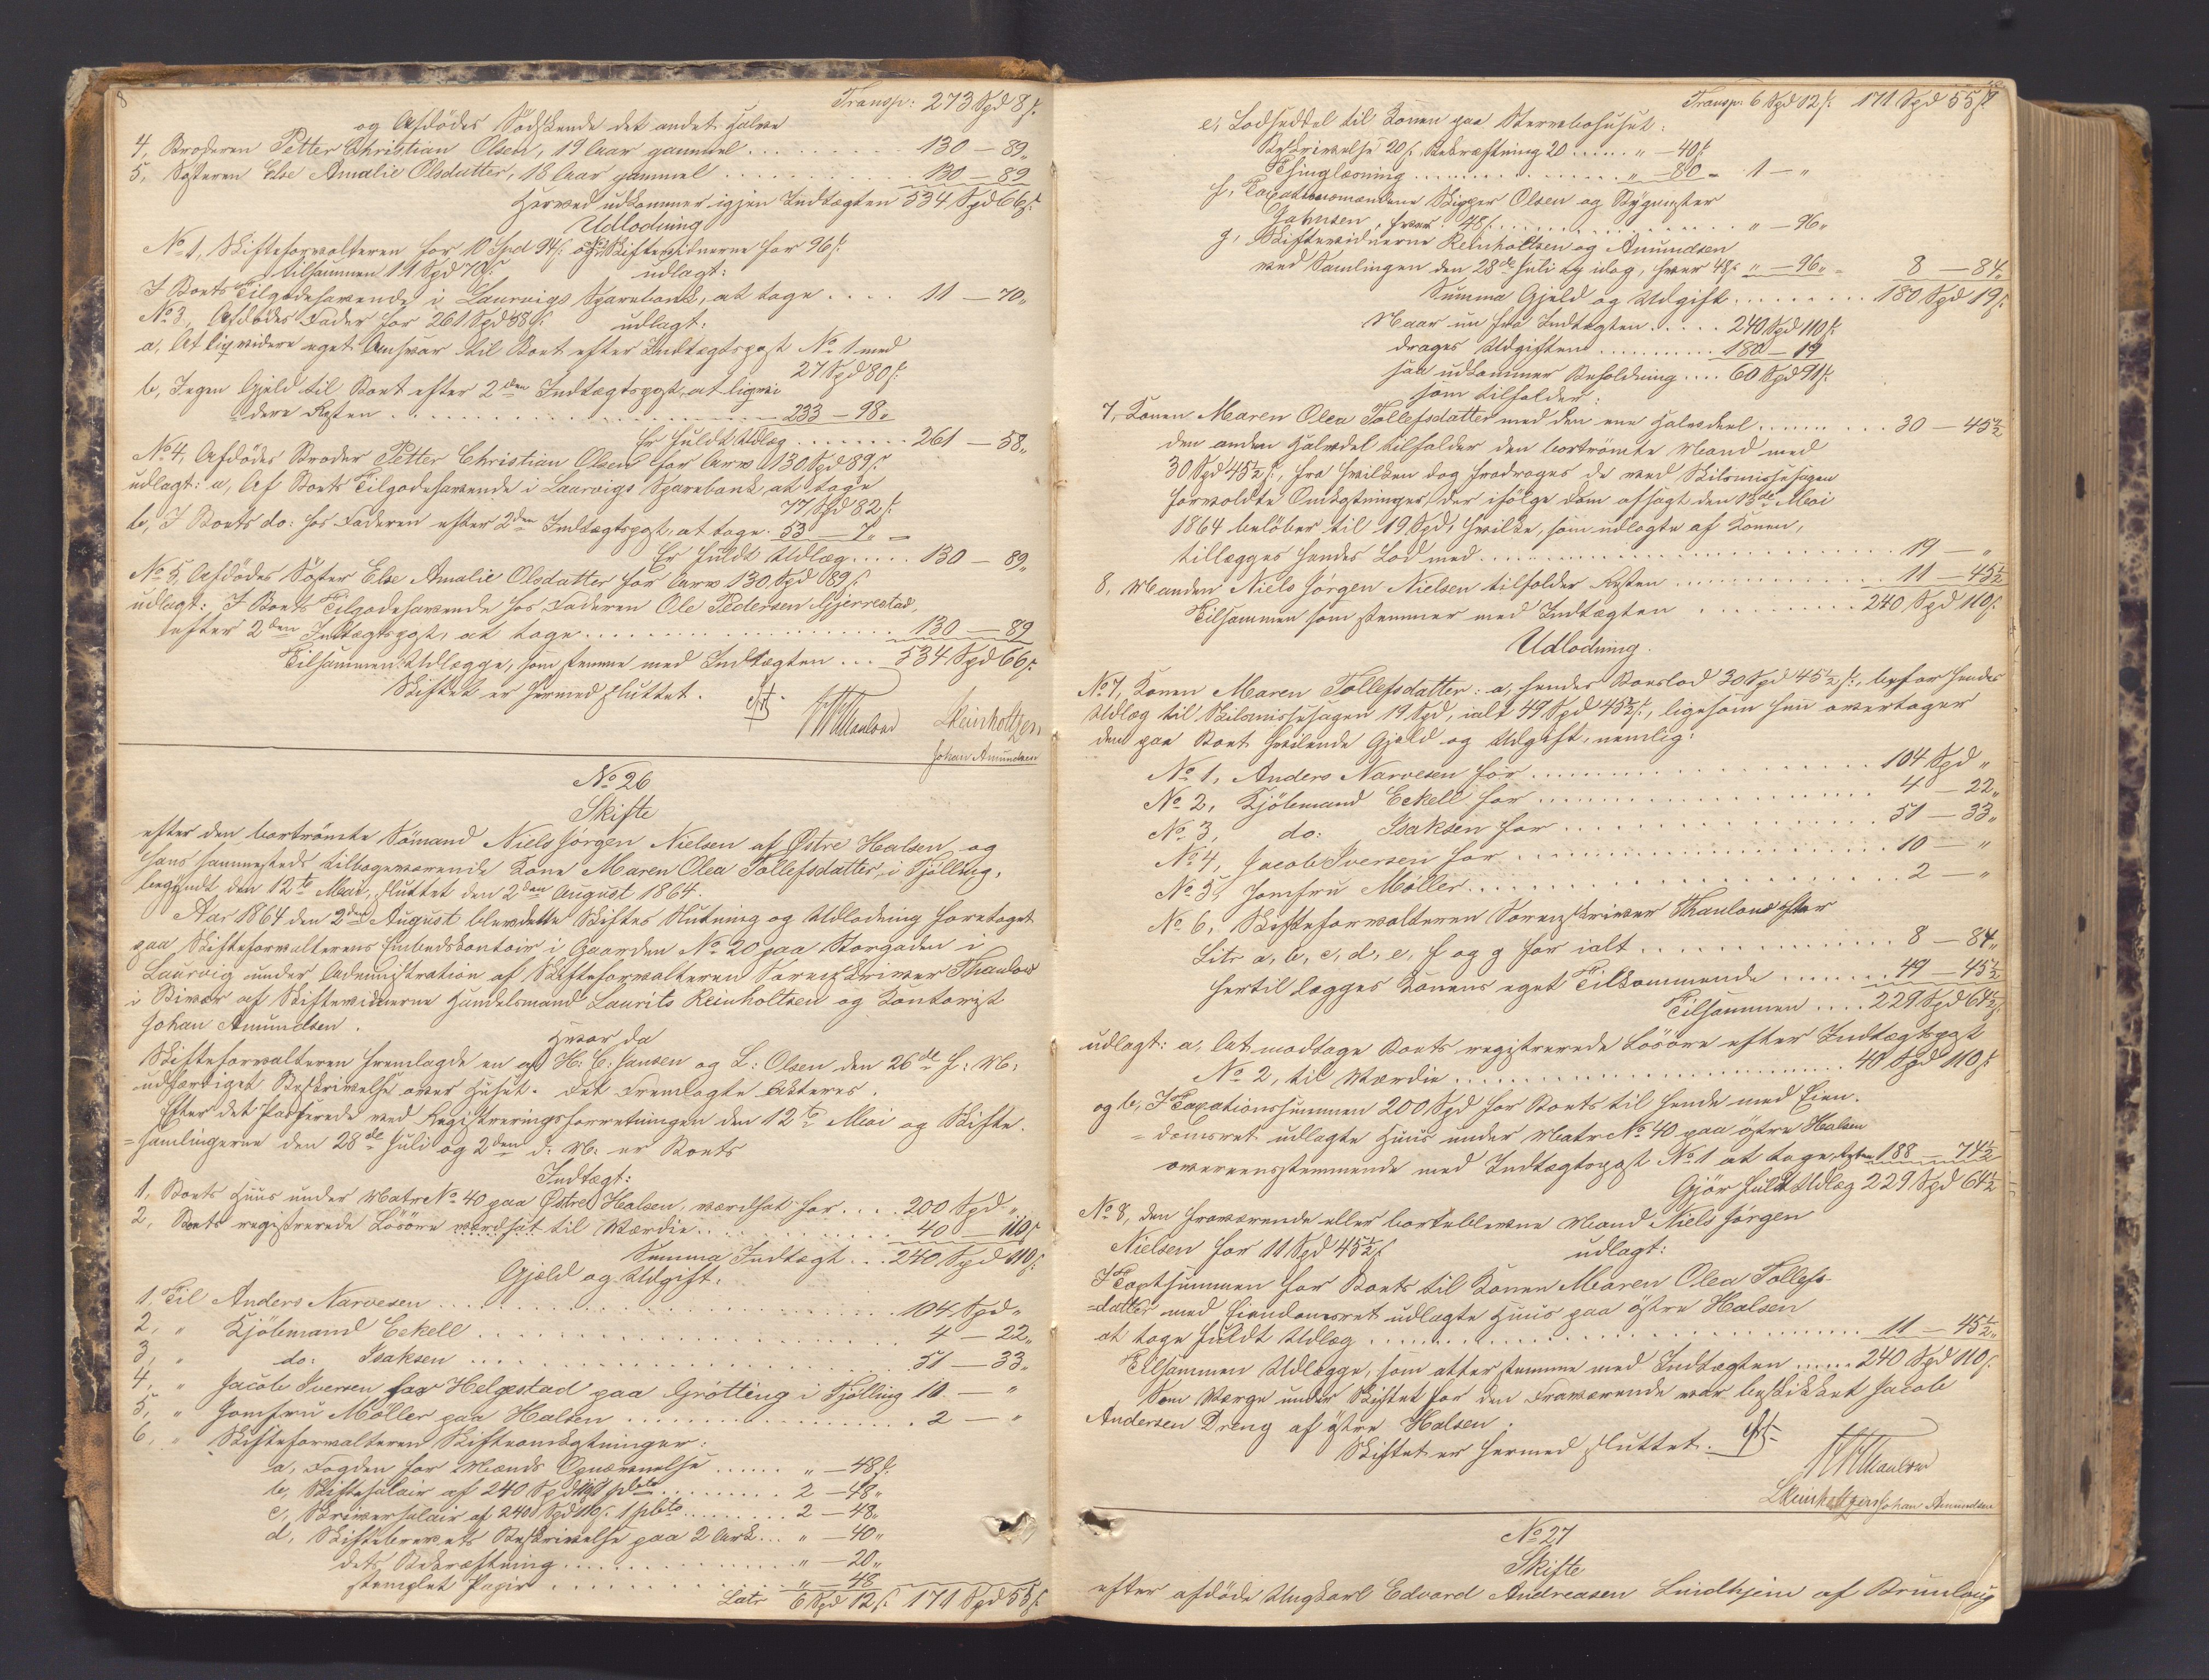 8
Transp: 273 Spd 8 s.
og Afdödes Södskende det andet Halve
4, Broderen Petter Christian Olsen, 19 Aar gammel . . . . . . . . 130 – 89 "
5, Søsteren Else Amalie Olsdatter, 18 Aar gammel . . . . . . . . 130 – 89
Herved udkommer igjen Indtægten 534 Spd 66 s.
Udlodning
No 1, Skifteforvalteren for 10 Spd 94 s. og Skiftevidnerne for 96 s.
tilsammen 11 Spd 70 s. udlagt:
I Boets Tilgodehavende i Laurvigs Sparebank, at tage . . . . 11 – 70 "
No 3, Afdödes Fader for 261 Spd 58 s. udlagt:
a, At liqvidere eget Ansvar til Boet efter Indtægtspost No 1 med
27 Spd 80 s.
b, Ingen Gjeld til Boet efter 2den Indtægtspost, at liqvi
dere Resten . . . . . . . . 233 – 98 "
Er fuldt Udlæg . . . . . . . . 261 – 58 "
No 4, Afdödes Broder Petter Christian Olsen for Arv 130 Spd 89 s.
udlagt: a, Af Boets Tilgodehavende i Laurvigs Sparebank, at tage
77 Spd 82 s.
b, I Boets do: hos Faderen efter 2den Indtægtspost, at tage. 53 – 7 " =
Er fuldt Udlæg . . . . 130 – 89 "
No 5, Afdödes Søster Else Amalie Olsdatter for Arv 130 Spd 89 s.
udlagt: I Boets Tilgodehavende hos Faderen Ole Pedersen Gjerrestad,
efter 2den Indtægtspost, at tage . . . . . . . . 130 – 89
Tilsammen Udlægge, som stemme med Indtægten . . . 534 Spd 66 s.
Skiftet er hermed sluttet.
Thaulow LReinholtzen
Johan Amundsen
No 26
Skifte
efter den bortrömte Sömand Niels Jörgen Nielsen af Østre Halsen og
hans sammesteds tilbageværende Kone Maren Olea Tollefsdatter i Tjölling,
begyndt den 12te Mai, sluttet den 2den August 1864.
Aar 1864 den 2den August blev dette Skiftes Slutning og Udlodning foretaget
paa Skifteforvalterens Embedskontoir i Gaarden No 20 paa Storgaden i
Laurvig under Administration af Skifteforvalteren Sorenskriver Thaulow
i Biværs af Skiftevidnerne Handelsmand Laurits Reinholtsen og Kontorist
Johan Amundsen.
Hvor da
Skifteforvalteren fremlagde en af H: C: Hansen og L: Olsen den 26de f: M:
udfærdiget Beskrivelse over Huset. Det Fremlagte Akteres.
Efter det Passerede ved Registreringsforretningen den 12te Mai og Skifte-
=samlingerne den 28de Juli og 2den d: M: er Boets
Indtægt:
1, Boets Huus under Matr No 40 paa Østre Halsen, værdsat for . . . . 200 Spd "
2, Boets registrerede Lösöre værdsat til Værdie . . . . . . . . 40 – 110 s.
Summa Indtægt . . . 240 Spd 110 s.
Gjæld og Udgift.
1, Til Anders Narvesen . . . . . . . . 104 Spd "
2, " Kjöbmand Eckell . . . . . . . . 4 – 22 "
3, " do: Isaksen . . . . . . . . 51 – 33 "
4, " Jacob Iversen fra Helgestad paa Grötting i Tjölling 10 – "
5, " Jomfru Möller paa Halsen . . . . . . . . 2 – "
6, " Skifteforvalteren Skifteomkostninger:
a, Fogden for Mænds Opnævnelse . . . . . . " – 48 s.
b, Skiftesalair af 240 Spd 110 s. 1 pCto . . . . . . . . 2 – 48 "
c, Skriversalair af 240 Spd 110 s. 1 pCto . . . . . . . . 2 – 48 "
d, Skiftebrevets Beskrivelse paa 2 Ark . . . " – 40 "
dets Bekræftning . . . . . . . . " – 20 "
stemplet Papir . . . . . . . . " – 48
Latr 6 Spd 12 s. 171 Spd 55 s.
Transp: 6 Spd 12 s. 171 Spd 55 s.
e, Lodseddel til Konen paa Stervbohuset:
Beskrivelse 20 s. Bekræftning 20 . . . . . " – 40 s.
Thinglæsning . . . . . . . . " – 80 = 1 – "
f, Taxationsmændene Skipper Olsen og Bygmester
Johnsen, hver 48 s. . . . . . . . . " – 96 "
g, Skiftevidnerne Reinholtsen og Amundsen
ved Samlingen den 28de Juli og idag, hver 48 s. " – 96 " = 8 – 84
Summa Gjeld og Udgift . . . . . . . . 180 Spd 19 s.
Naar nu fra Indtægten . . . . . 240 Spd 110 s.
drages Udgiften . . . . . . . . 180 – 19
saa udkommer Beholdning . . . . 60 Spd 91 s.
som tilfalder:
7, Konen Maren Olea Tollefsdatter med den ene Halvdeel . . . . . . . . 30 – 45½
den anden Halvdel tilfalder den bortrömte Mand med
30 Spd 45½ s., fra hvilken dog fradrages de ved Skilsmissesagen
forvoldte Omkostninger, der ifölge Dom afsagt den 13de Mai
1864 belöber til 19 Spd, hvilke, som udlagte af Konen,
tillægges hendes Lod med . . . . . . . . 19 – "
8, Manden Niels Jörgen Nielsen tilfalder Resten . . . . . . . . 11 – 45½
Tilsammen som stemmer med Indtægten . . . . . . . . 240 Spd 110 s.
Udlodning.
No 7, Konen Maren Tollefsdatter: a, hendes Boeslod 30 Spd 45½ s., b, for hendes
Udlæg til Skilsmissesagen 19 Spd, ialt 49 Spd 45½ s., ligesom hun overtager
den paa Boet hvilende Gjeld og Udgift, nemlig:
No 1, Anders Narvesen for . . . . . . . . 104 Spd "
No 2, Kjöbmand Eckell for . . . . . . . . 4 – 22 "
No 3, do: Isaksen for . . . . . . . . 51 – 33 "
No 4, Jacob Iversen for . . . . . . . . 10 – "
No 5, Jomfru Möller . . . . . . . . 2 – "
No 6, Skifteforvalteren Sorenskriver Thaulow efter
Litr a, b, c, d, e, f og g for ialt . . . . . . . . 8 – 84 "
hertil lægges Konens eget Tilkommende . . . . . . . . 49 – 45½
Tilsammen . . . . 229 Spd 64½ s.
udlagt: a, At modtage Boets registrerede Lösöre efter Indtægtspost
No 2, til Værdie . . . . . . . . 40 Spd 110 s.
og b, I Taxationssummen 200 Spd for Boets til hende med Eien-
=domsret udlagte Huus under Matr No 40 paa östre Halsen
overeensstemmende med Indtægtspost No 1 at tage Resten 188 – 74½
Gjör fuldt Udlæg 229 Spd 64½
No 8, den fraværende eller borteblevne Mand Niels Jörgen
Nielsen for 11 Spd 45½ s. udlagt:
I Taxtsummen for Boets til Konen Maren Olea Tollefs-
=datter med Eiendomsret udlagte Huus paa östre Halsen
at tage fuldt Udlæg . . . . . . . . 11 – 45½ "
Tilsammen Udlægge, som atter stemme med Indtægten . . . . . . 240 Spd 110 s.
Som Værge under Skiftet for den Fraværende var beskikket Jacob
Andersen Dreng af östre Halsen.
Skiftet er hermed sluttet.
Thaulow
LReinholtzen Johan Amundsen
No 27
Skifte
efter afdöde Ungkarl Edvard Andreasen Lindhjem af Brunlaug